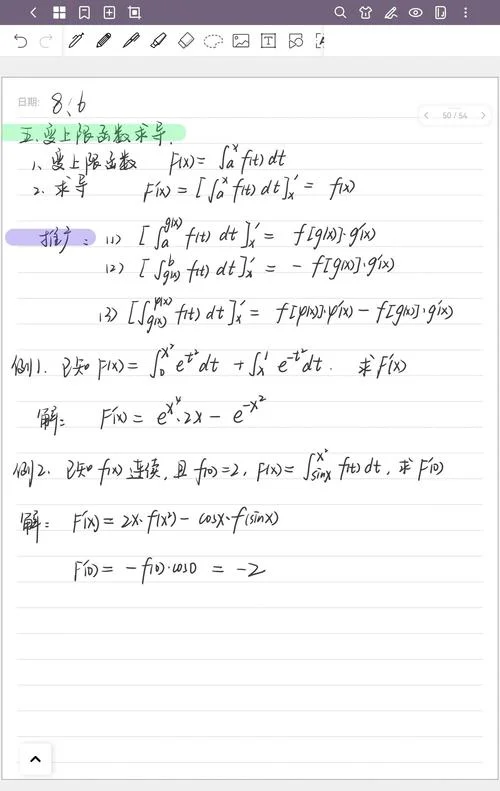 日期: 8.6
50 / 54
五.变上限函数求导.
1. 变上限函数 F(x)=∫ₐˣ f(t)dt
2. 求导 F'(x)=[∫ₐˣ f(t)dt]'ₓ= f(x)
推广: (1) [∫_a^{g(x)} f(t) dt]'ₓ= f[g(x)]·g'(x)
(2) [∫_{g(x)}^b f(t) dt]'ₓ= -f[g(x)]·g'(x)
(3) [∫_{g(x)}^{φ(x)} f(t) dt]'ₓ= f[φ(x)]·φ'(x) - f[g(x)]·g'(x)
例1. 已知 F(x)=∫_0^{x²} e^{t²}dt +∫_x^1 e^{-t²}dt. 求F'(x)
解: F'(x)= e^{x⁴}·2x - e^{-x²}
例2. 已知f(x)连续,且f(0)=2, F(x)=∫_{sinx}^{x²} f(t)dt, 求F'(0)
解: F'(x)= 2x·f(x²) - cosx·f(sinx)
F'(0)= -f(0)·cos0 = -2